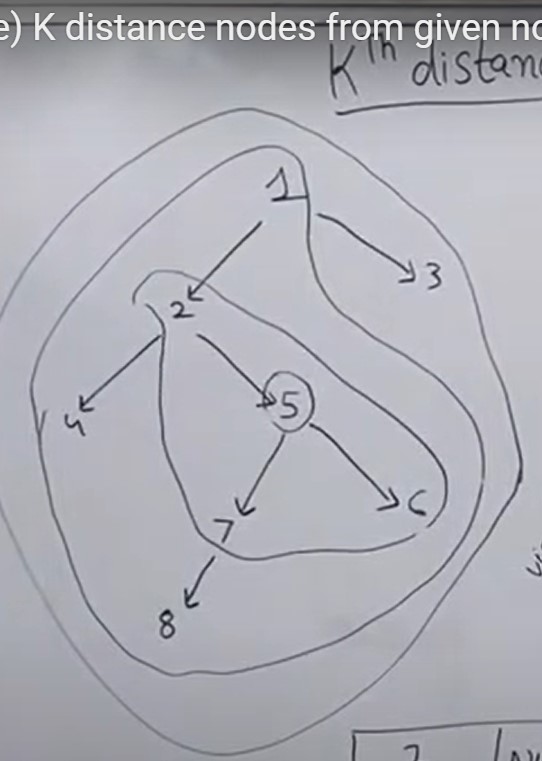 e) K distance nodes from given no
Kth distan
1
2
3
4
5
7
6
8